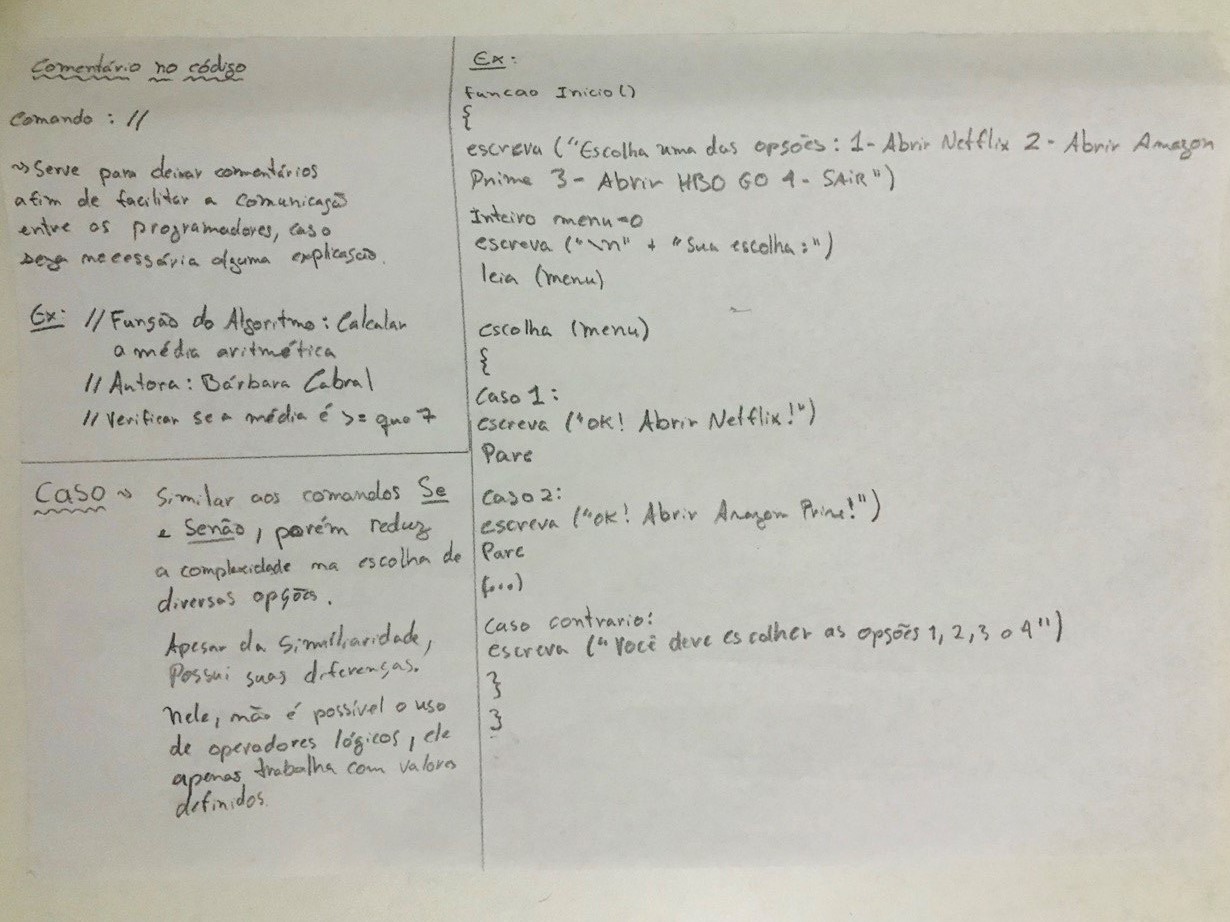 Comentário no código
Comando : //
~> Serve para deixar comentários
afim de facilitar a comunicação
entre os programadores, caso
seja necessária alguma explicação.
Ex: // Função do Algoritmo: Calcular
a média aritmética
// Autora: Bárbara Cabral
// Verificar se a média é >= que 7
Caso ~> Similar aos comandos Se
e Senão, porém reduz
a complexidade na escolha de
diversas opções.
Apesar da similiaridade,
Possui suas diferenças.
Nele, não é possível o uso
de operadores lógicos, ele
apenas trabalha com valores
definidos.
Ex:
funcao Inicio()
{
escreva ("Escolha uma das opsões: 1- Abrir Netflix 2- Abrir Amazon
Prime 3- Abrir HBO GO 4- SAIR")
Inteiro menu=0
escreva ("\n" + "Sua escolha:")
leia (menu)
escolha (menu)
{
Caso 1:
escreva ("OK! Abrir Netflix!")
Pare
Caso 2:
escreva ("OK! Abrir Amazon Prime!")
Pare
(...)
Caso contrario:
escreva ("Você deve escolher as opsões 1, 2, 3 o 4")
}
}